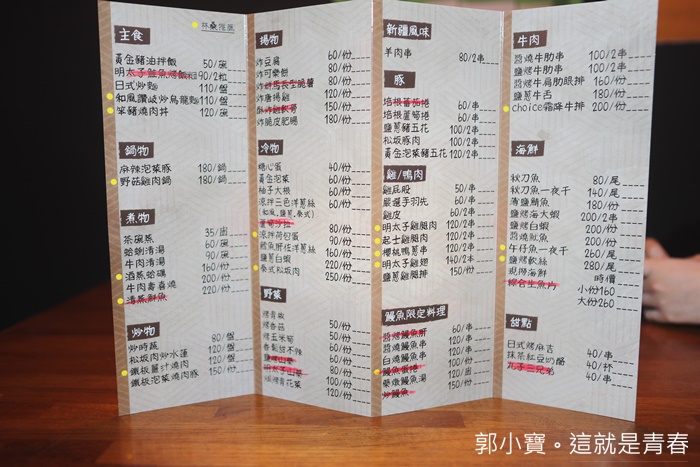 林桑推薦
主食
黃金豬油拌飯 50/碗
明太子鮭魚烤飯糰 90/2粒
日式炒麵 110/盤
和風讚岐炒烏龍麵 110/盤
笨豬燒肉丼 120/碗
鍋物
麻辣泡菜豚 180/鍋
野菇雞肉鍋 180/鍋
煮物
茶碗蒸 35/
蛤蜊清湯 60/碗
牛肉清湯 90/碗
酒蒸蛤蠣 160/份
牛肉壽喜燒 200/份
清蒸鮮魚 220/份
炒物
炒時蔬 80/盤
松坂肉炒水蓮 120/盤
鐵板薑汁燒肉 120/盤
鐵板泡菜燒肉豚 150/份
揚物
炸豆腐 60/份
炸可樂餅 80/份
炸唐揚雞
炸脆皮肥腸 180/份
冷物
糖心蛋 40/份
黃金泡菜 60/份
柚子大根 60/份
涼拌三色洋蔥絲 60/份
(和風,鹽蔥,泰式)
涼拌荷包蛋 90/份
鱈魚肝佐洋蔥絲 160/份
鹽蔥白蝦 220/份
泰式松坂肉 250/份
野菜
烤青椒 50/份
烤香菇 50/份
烤玉米筍 50/份
香鬆甜不辣 60/份
鹽烤山藥
明太子山藥 80/份
焗烤青花菜 100/份
新疆風味
羊肉串 80/2串
豚
培根番茄捲 60/2串
培根蘆筍捲 60/2串
鹽蔥豬五花 100/2串
松坂豚肉 100/2串
黃金泡菜豬五花 120/2串
雞/鴨肉
雞屁股 50/串
嚴選手羽先 60/串
雞皮 60/2串
明太子雞腿肉 100/2串
起士雞腿肉 100/2串
櫻桃鴨蔥串 120/2串
明太子雞翅 140/2串
蔥鹽雞腿排 150/份
鰻魚限定料理
醬烤鰻魚肝 60/串
醬燒鰻魚串 120/串
白燒鰻魚串 120/串
鰻魚蛋捲 100/份
藥燉鰻魚湯 120/
炒鰻魚 150/份
牛肉
醬燒牛肋串 100/2串
鹽烤牛肋串 100/2串
醬烤牛肩肋眼排 160/份
鹽蔥牛舌 180/份
choice霜降牛排 200/份
海鮮
秋刀魚 80/尾
秋刀魚一夜干 140/尾
薄鹽鯖魚 180/份
鹽烤海大蝦 200/2串
鹽烤白蝦 200/份
醬燒魷魚 200/份
午仔魚一夜干 260/尾
鹽烤軟絲 280/尾
現撈海鮮 時價
綜合生魚片 小份160
大份260
甜點
日式烤麻吉 40/串
抹茶紅豆奶酪 40/杯
丸子三兄弟 40/串
郭小寶。這就是青春